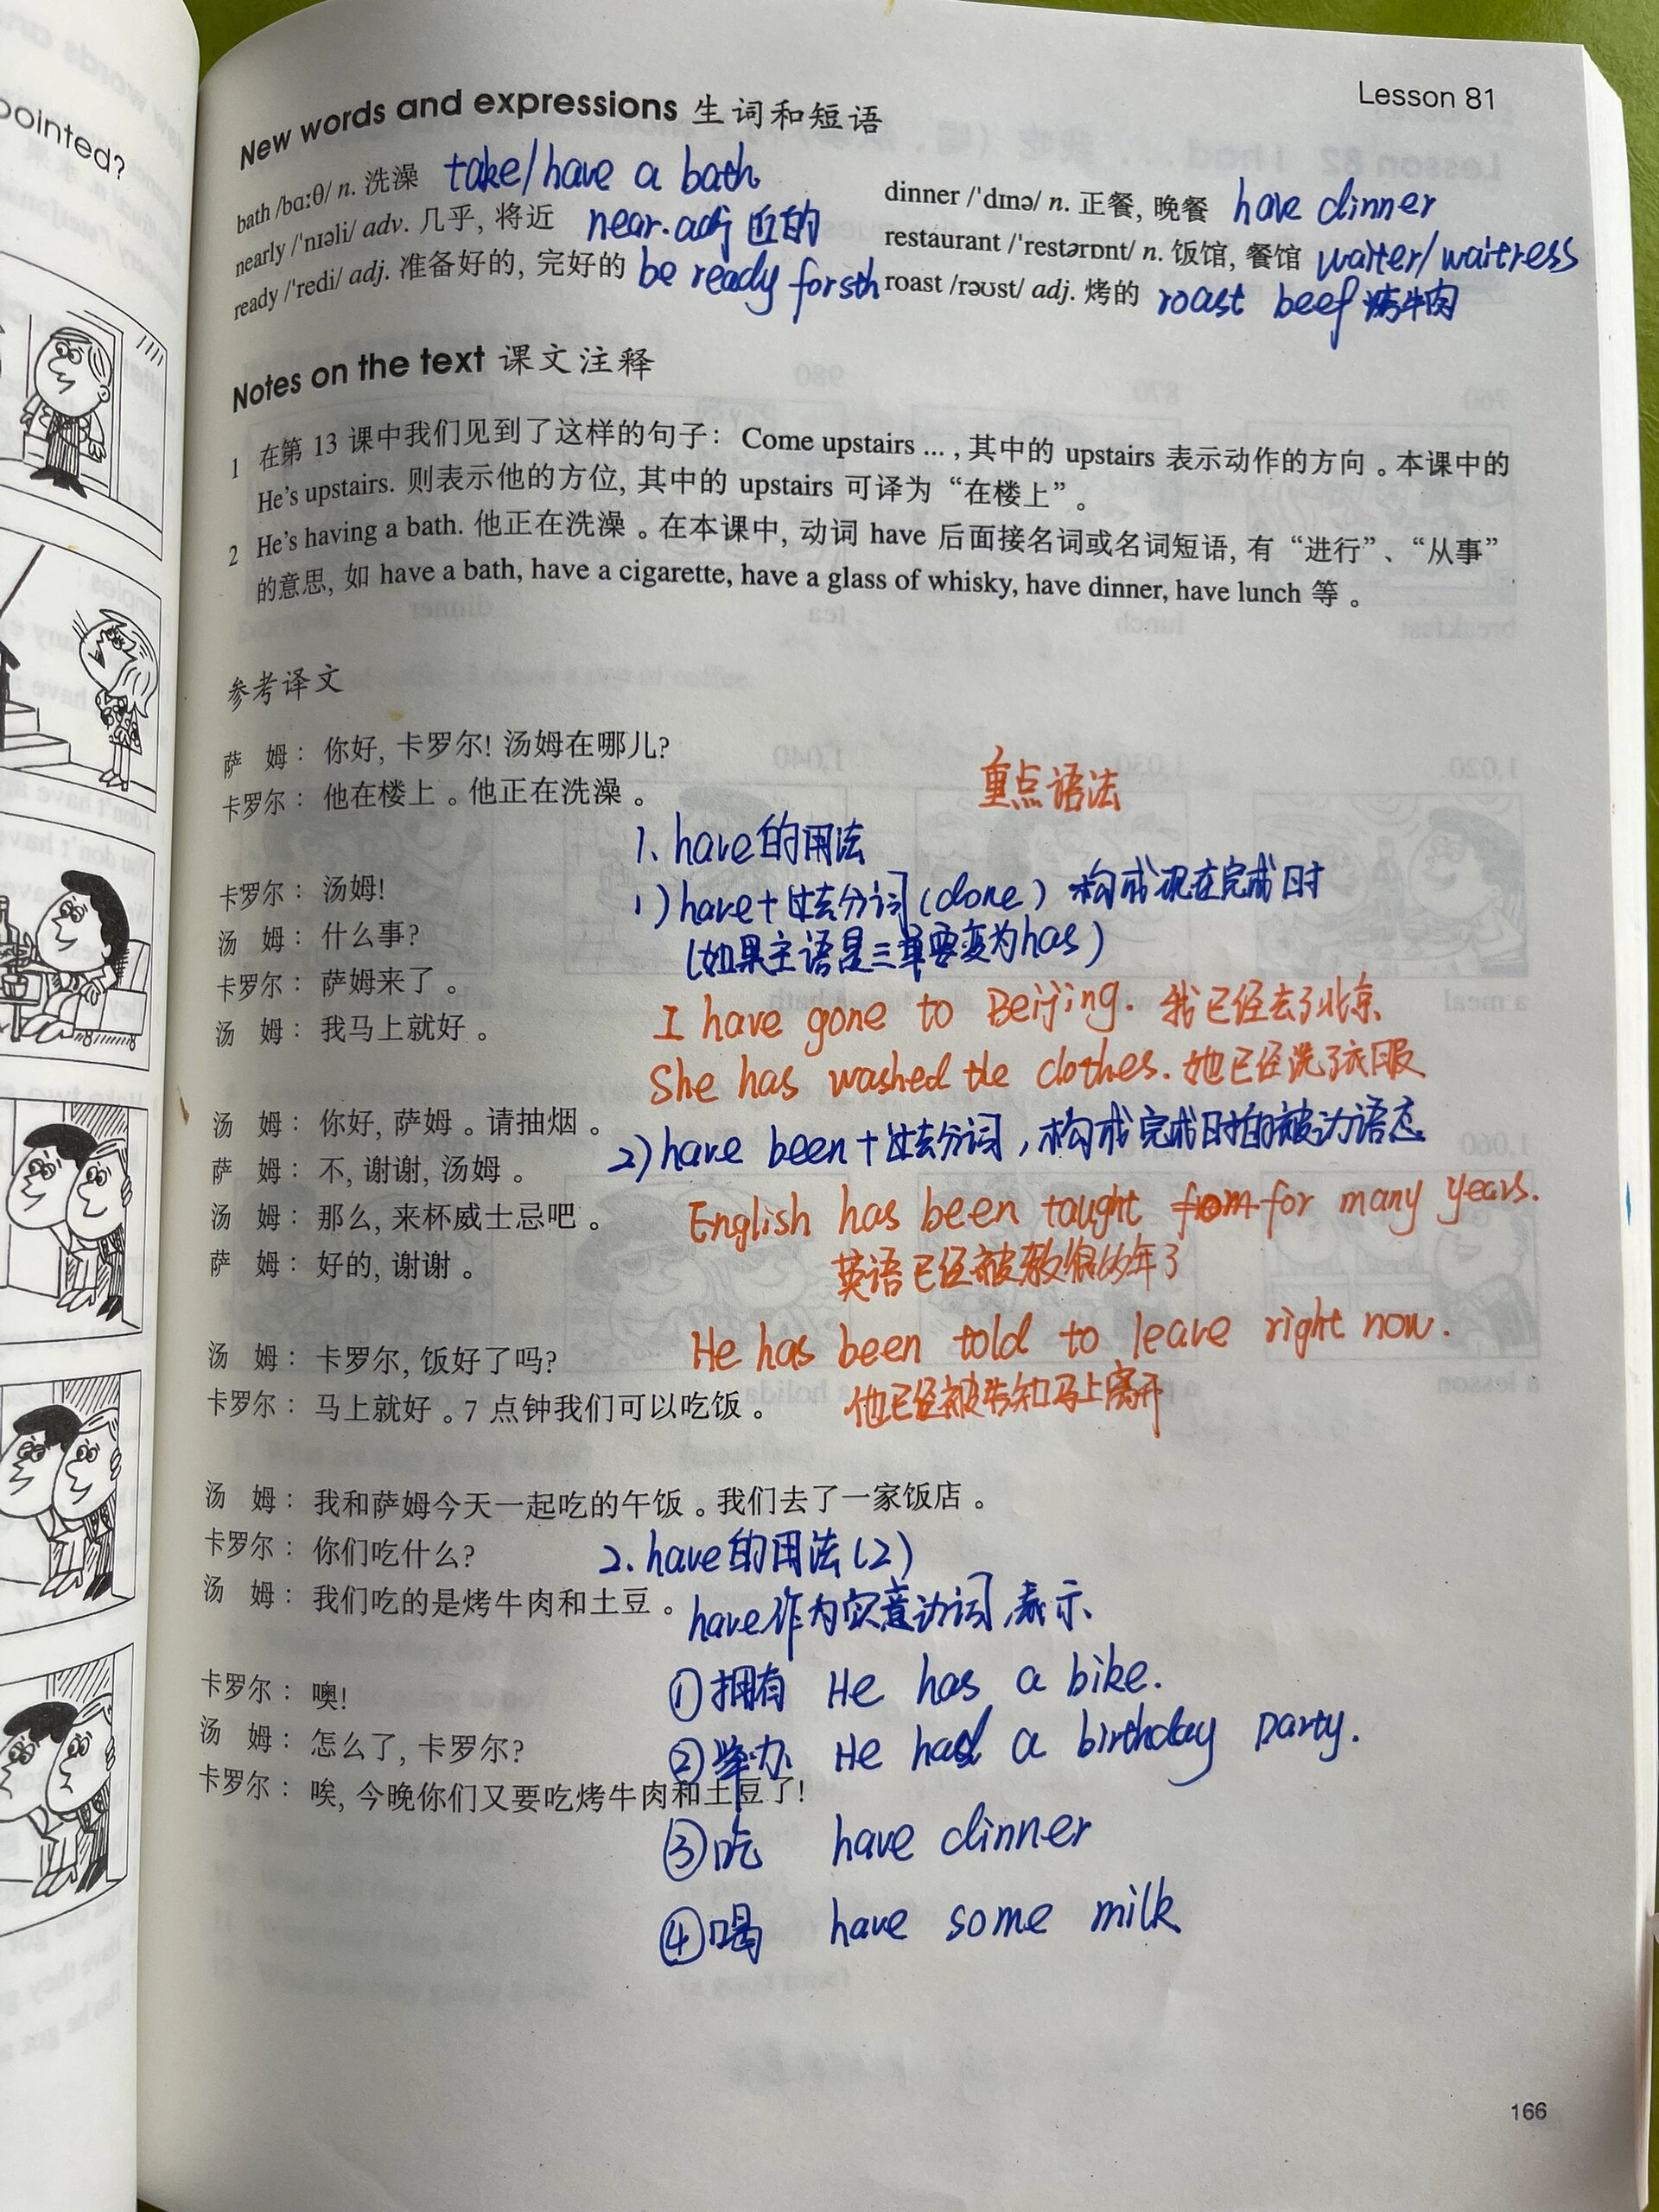 pointed?
Lesson 81
New words and expressions 生词和短语
bath /bɑːθ/ n. 洗澡 take/have a bath
nearly /ˈnɪəli/ adv. 几乎, 将近 near.adj 近的
ready /ˈredi/ adj. 准备好的, 完好的 be ready for sth
dinner /ˈdɪnə/ n. 正餐, 晚餐 have dinner
restaurant /ˈrestərɒnt/ n. 饭馆, 餐馆 waiter/waitress
roast /rəʊst/ adj. 烤的 roast beef 烤牛肉
Notes on the text 课文注释
1 在第 13 课中我们见到了这样的句子: Come upstairs ... , 其中的 upstairs 表示动作的方向。本课中的
He's upstairs. 则表示他的方位, 其中的 upstairs 可译为“在楼上”。
2 He's having a bath. 他正在洗澡。在本课中, 动词 have 后面接名词或名词短语, 有“进行”、“从事”
的意思, 如 have a bath, have a cigarette, have a glass of whisky, have dinner, have lunch 等。
参考译文
萨 姆: 你好, 卡罗尔! 汤姆在哪儿?
卡罗尔: 他在楼上。他正在洗澡。
卡罗尔: 汤姆!
汤 姆: 什么事?
卡罗尔: 萨姆来了。
汤 姆: 我马上就好。
汤 姆: 你好, 萨姆。请抽烟。
萨 姆: 不, 谢谢, 汤姆。
汤 姆: 那么, 来杯威士忌吧。
萨 姆: 好的, 谢谢。
汤 姆: 卡罗尔, 饭好了吗?
卡罗尔: 马上就好。7 点钟我们可以吃饭。
汤 姆: 我和萨姆今天一起吃的午饭。我们去了一家饭店。
卡罗尔: 你们吃什么?
汤 姆: 我们吃的是烤牛肉和土豆。
卡罗尔: 噢!
汤 姆: 怎么了, 卡罗尔?
卡罗尔: 唉, 今晚你们又要吃烤牛肉和土豆了!
重点语法
1、have的用法
1) have+过去分词(done) 构成现在完成时
(如果主语是三单要变为has)
I have gone to Beijing. 我已经去了北京
She has washed the clothes. 她已经洗了衣服
2) have been+过去分词, 构成完成时的被动语态
English has been taught from for many years.
英语已经被教很多年了
He has been told to leave right now.
他已经被告知马上离开
2. have的用法(2)
have作为实意动词, 表示
①拥有 He has a bike.
②举办 He had a birthday party.
③吃 have dinner
④喝 have some milk
166